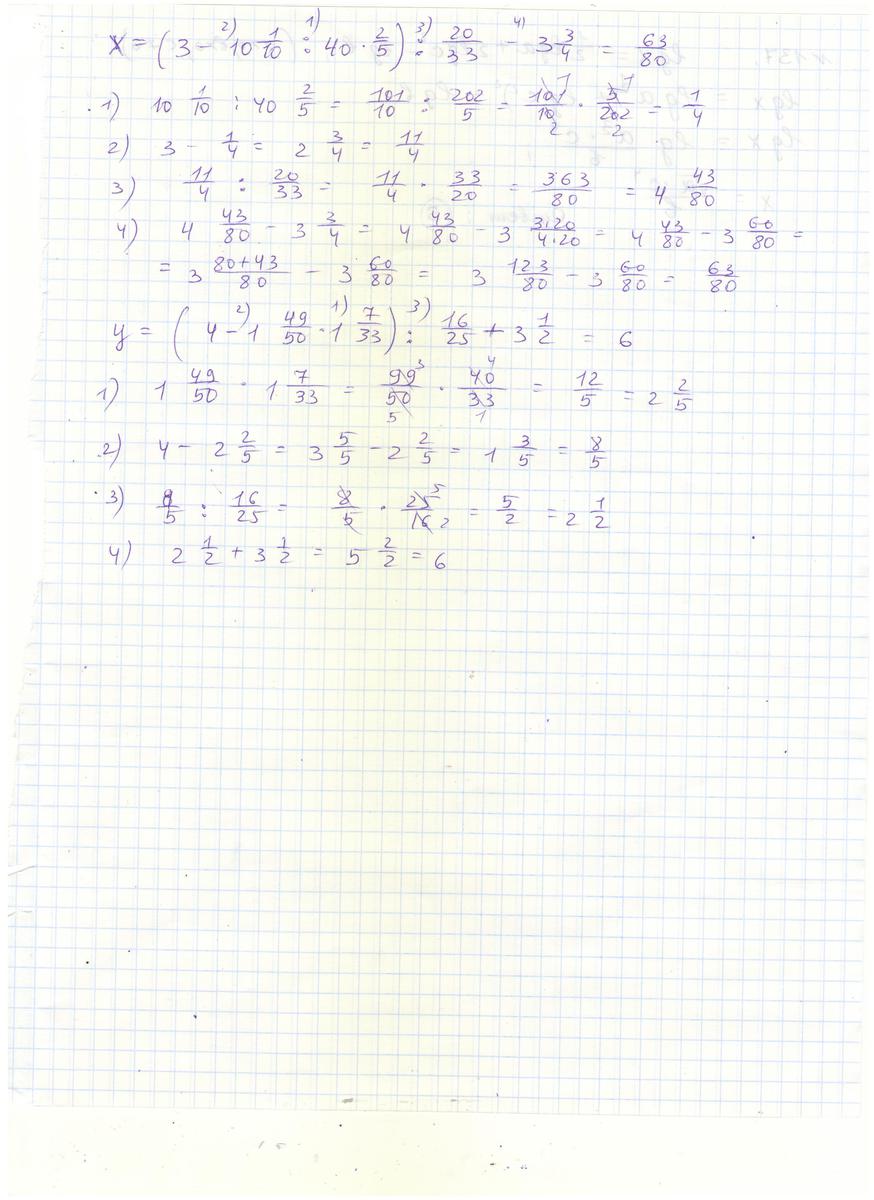 x = (3 - 10 1/10 : 40 · 2/5) : 20/33 - 3 3/4 = 63/80
1) 10 1/10 : 40 2/5 = 101/10 : 202/5 = 101/10 · 5/202 = 1/4
2) 3 - 1/4 = 2 3/4 = 11/4
3) 11/4 : 20/33 = 11/4 · 33/20 = 363/80 = 4 43/80
4) 4 43/80 - 3 3/4 = 4 43/80 - 3 3·20/4·20 = 4 43/80 - 3 60/80 =
= 3 80+43/80 - 3 60/80 = 3 123/80 - 3 60/80 = 63/80
y = (4 - 1 49/50 · 1 7/33) : 16/25 + 3 1/2 = 6
1) 1 49/50 · 1 7/33 = 99/50 · 40/33 = 12/5 = 2 2/5
2) 4 - 2 2/5 = 3 5/5 - 2 2/5 = 1 3/5 = 8/5
3) 8/5 : 16/25 = 8/5 · 25/16 = 5/2 = 2 1/2
4) 2 1/2 + 3 1/2 = 5 2/2 = 6